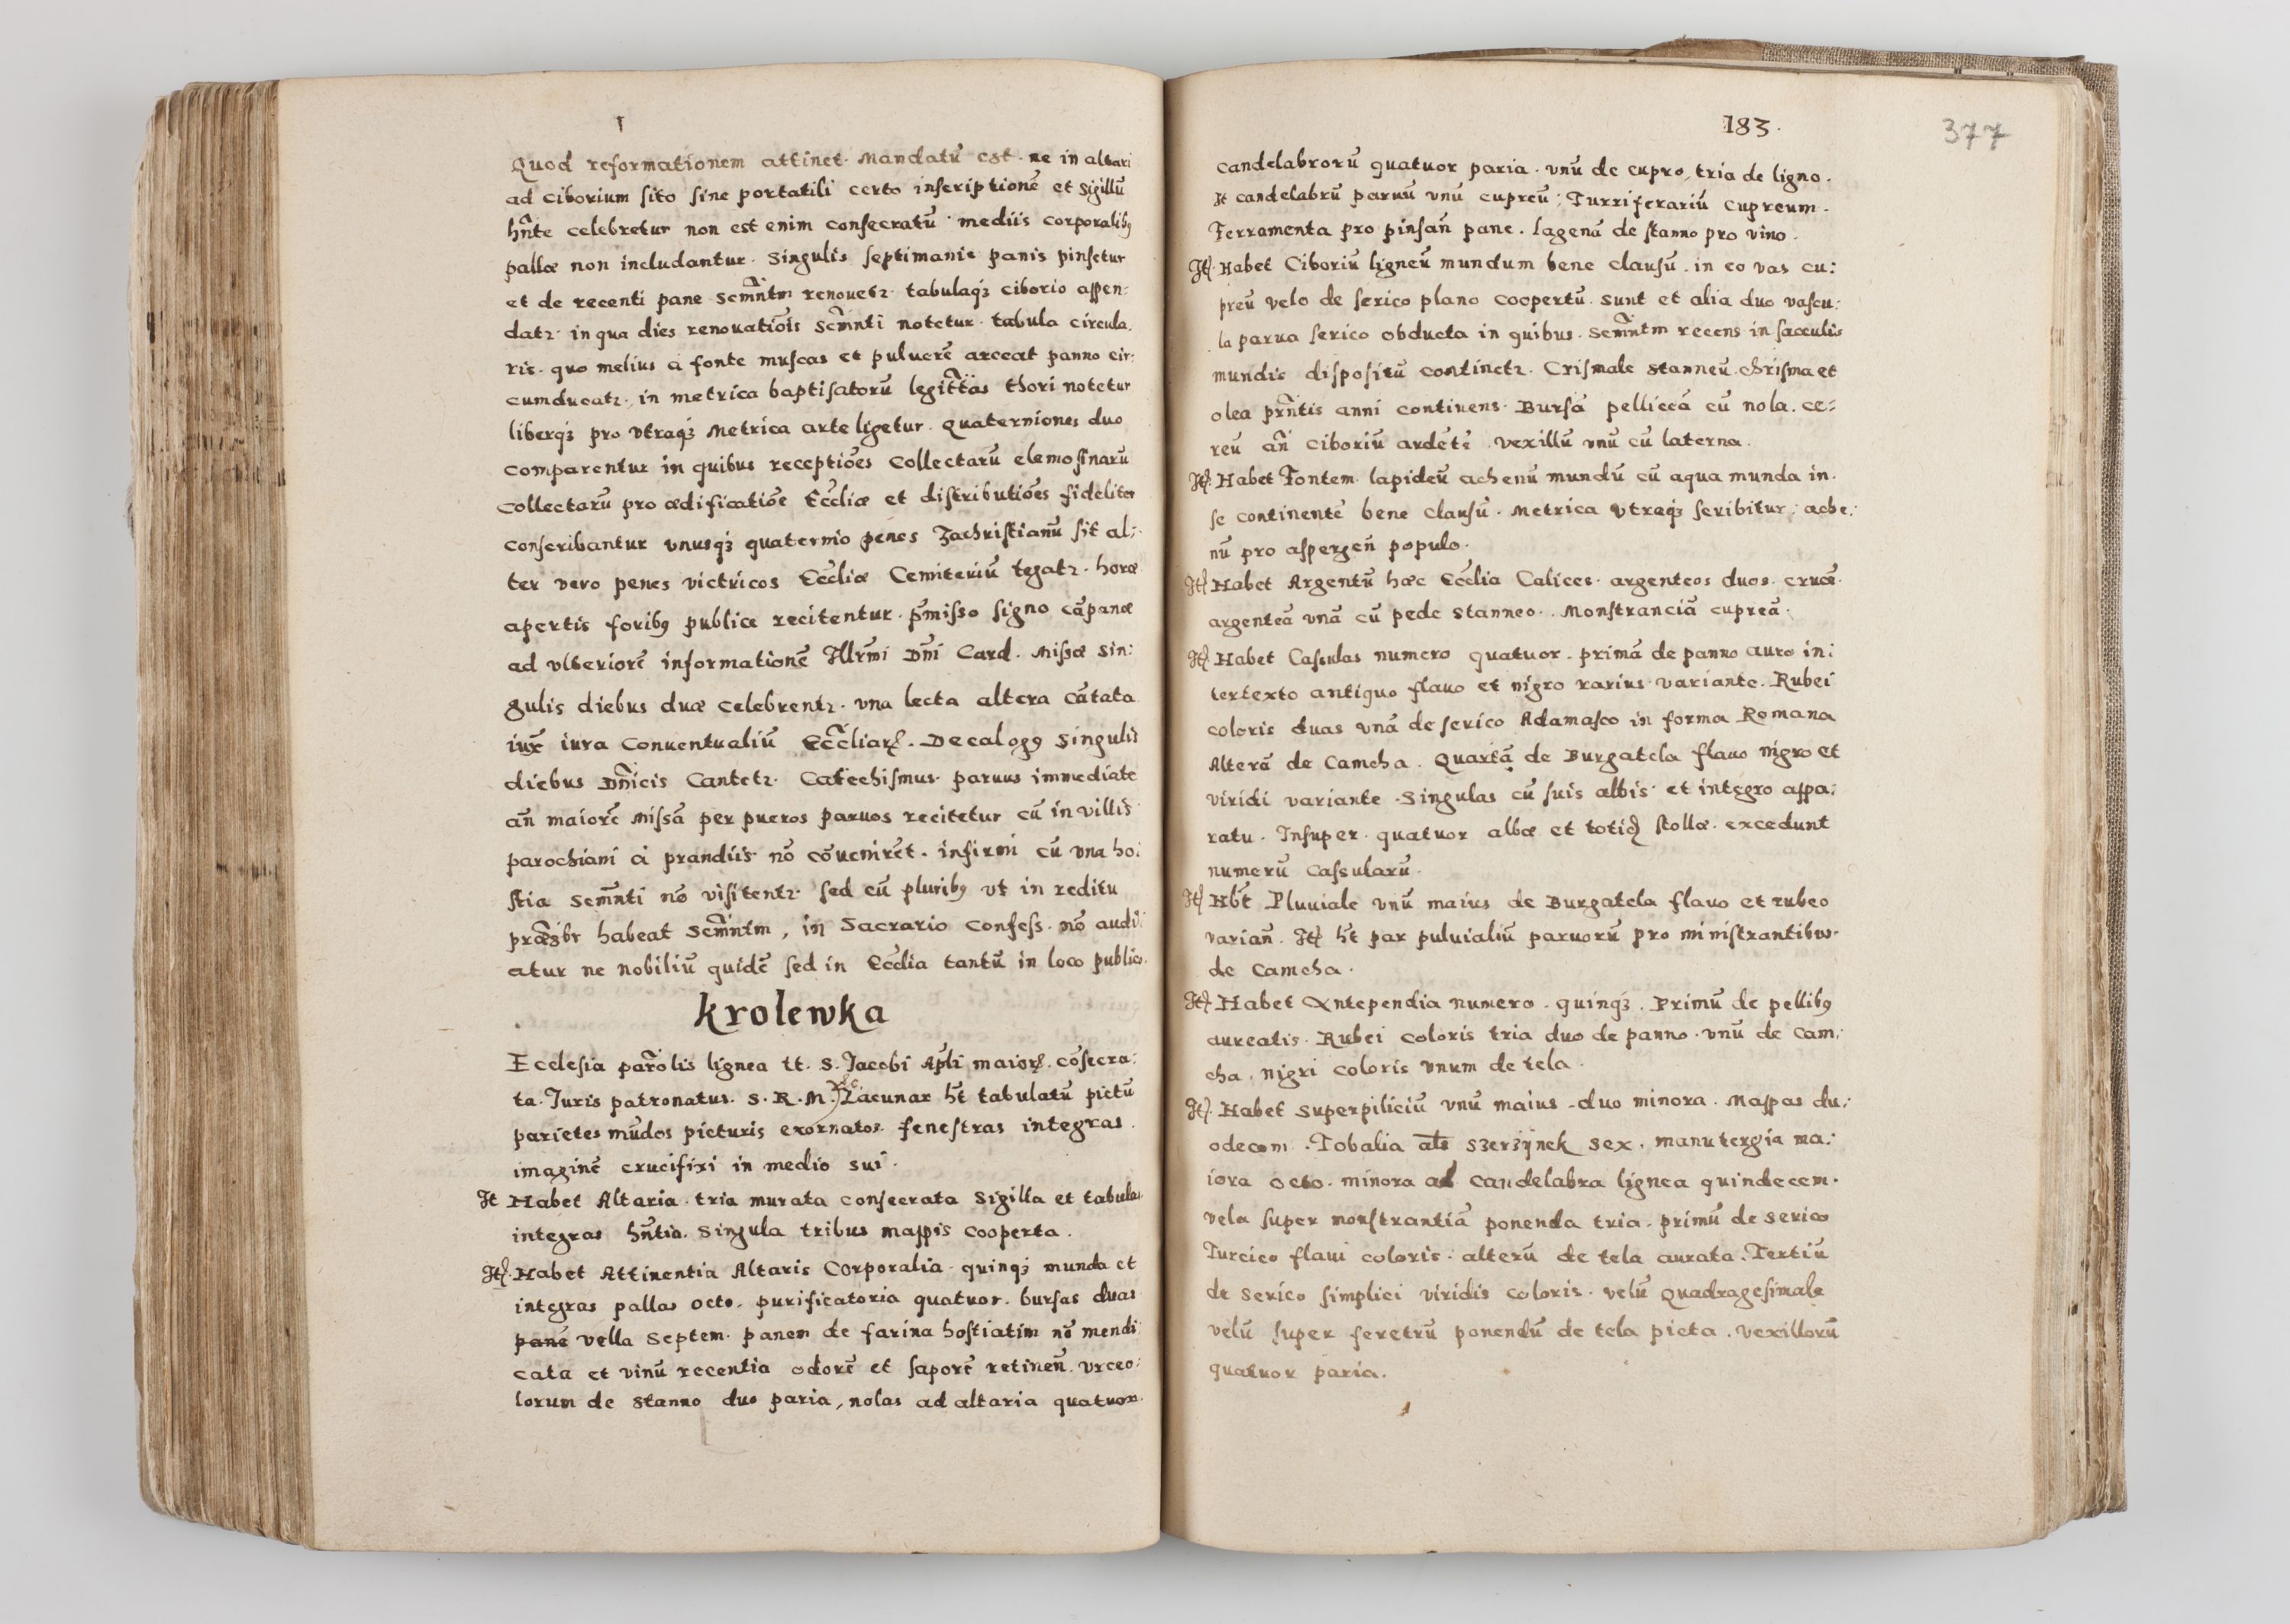 Quod reformationem attinet. Mandatū est. ne in altari
ad Ciborium sito sine portatili certo inscriptionē et Sigillū
hñte celebretur non est enim consecratū. mediis corporalibꝫ
pallæ non includantur. Singulis septimanis panis pinsetur
et de recenti pane Scm̃ntm renouetꝛ. tabulaqꝫ ciborio appen:
datꝛ. in qua dies renouatiōis Scm̃nti notetur. tabula circula.
ris. quo melius a fonte muscas et puluerē arceat panno cir:
cumducatꝛ. in metrica baptisatorū legitt̃as thori notetur
liberqꝫ pro vtraqꝫ Metrica arte ligetur. Quaterniones duo
comparentur in quibus receptiōes Collectarū elemosinarū
Collectarū pro ædificatiōe Eccl̃iæ et distributiōes fideliter
conscribantur vnusqꝫ quaternio penes Zachristianū sit al:
ter vero penes victricos Eccl̃iæ Cemiteriū tegatꝛ. horæ
apertis foribꝫ publice recitentur. p̃misso signo cāpanæ
ad vlteriorē informationē Illr̃mi Dñi Card. Missæ sin:
gulis diebus duæ celebrentꝛ. vna lecta altera cātata
iux̃ iura Conuentualiū Eccl̃iarꝝ. Decalogꝫ Singulis
diebus Dñicis Cantetꝛ. Catechismus paruus immediate
añ maiorē Missā per pueros paruos recitetur cū in villis
parochiani a prandiis nō cōuenirēt. infirmi cū vna ho:
stia Scm̃nti nō visitentꝛ. sed cū pluribꝫ vt in reditu
præsbr habeat Scm̃ntm, in Sacrario Confess. nō audi:
atur ne nobiliū quidē sed in Eccl̃ia tantū in loco publico.
Krolewka
Ecclesia parõlis lignea tt. S. Jacobi Apl̃i maiorꝭ. cōsecra:
ta. Juris patronatus. S. R. M. Lacunar ht̃ tabulatū pictū
parietes mūdos picturis exornatos fenestras integras.
imaginē crucifixi in medio sui.
It Habet Altaria. tria murata consecrata Sigilla et tabulas
integras hñtia. Singula tribus mappis cooperta.
Itꝭ. Habet Attinentia Altaris Corporalia. quinqꝫ munda et
integras pallas octo. purificatoria quatuor. bursas duas
panē vella Septem. panem de farina hostiatim nō mendi
cata et vinū recentia odorē et saporē retineñ. vrceo:
lorum de Stanno duo paria, nolas ad altaria quatuor.
183.
377
candelabrorū quatuor paria. vnū de cupro, tria de ligno.
It candelabrū paruū vnū cupreū; Turriferariū cupreum.
Ferramenta pro pinsañ pane. Lagenā de stanno pro vino.
Itꝭ. Habet Ciboriū ligneū mundum bene clausū. in eo vas cu:
preū velo de serico plano coopertū. sunt et alia duo vascu:
la parua serico obducta in quibus. Scm̃ntm recens in sacculis
mundis dispositū continetꝛ. Crismale Stanneū chrisma et
olea prñtis anni continens. Bursā pelliceā cū nola. ce:
reū añ Ciboriū ardētē. Vexillū vnū cū laterna.
Itꝭ. Habet Fontem. lapideū achenū mundū cū aqua munda in.
se continentē bene clausū. Metrica vtraqꝫ scribitur. ache:
nū pro aspergeñ populo.
Itꝭ Habet Argentū hæc Eccl̃ia Calices. argenteos duos. crucē.
argenteā vnā cū pede stanneo. Monstranciā cupreā.
Itꝭ Habet Cassulas numero quatuor. primā de panno auro in:
tertexto antiquo flauo et nigro rarius variante. Rubei
coloris duas vnā de serico Adamasco in forma Romana
Alterā de Camcha. Quartā de Burgatela flauo nigro et
viridi variante. Singulas cū suis albis et integro appa:
ratu. Insuper. quatuor albæ et totiđ stollæ. excedunt
numerū Cassularū.
Itꝭ Hbt̃ Pluuiale vnū maius de Burgatela flauo et rubeo
variañ. Itꝭ ht̃ par puluialiū paruorū pro ministrantibus.
de Camcha.
Itꝭ. Habet Antependia numero. quinqꝫ. Primū de pellibꝫ
aureatis. Rubei coloris tria duo de panno. vnū de cam:
cha. nigri coloris vnum de tela.
Itꝭ. Habet Superpiliciū vnū maius. duo minora. Mappas du:
odecem. Tobalia als̃ szerzÿnek sex. manutergia ma:
iora octo. minora ad candelabra lignea quindecem.
vela super monstrantiā ponenda tria. primū de serico
Turcico flaui coloris. alterū de tela aurata. Tertiū
de serico simplici viridis coloris. velū Quadragesimale
velū super feretrū ponendū de tela picta. Vexillorū
quatuor paria.